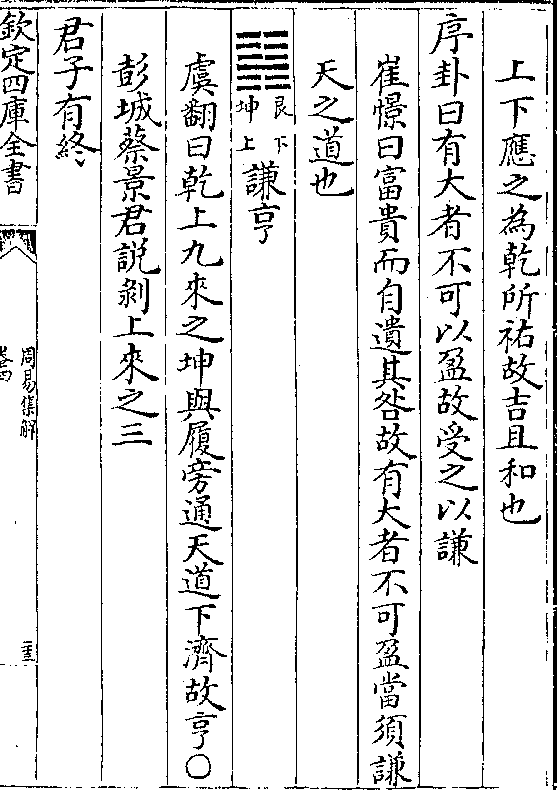 上下應之為乾所祐故吉且和也
序卦曰有大者不可以盈故受之以謙
崔憬曰富貴而自遺其咎故有大者不可盈當須謙
天之道也
䷎艮下坤上謙亨
虞翻曰乾上九來之坤與履旁通天道下濟故亨〇
彭城蔡景君說剝上來之三
君子有終
欽定四庫全書
周易集解
卷四